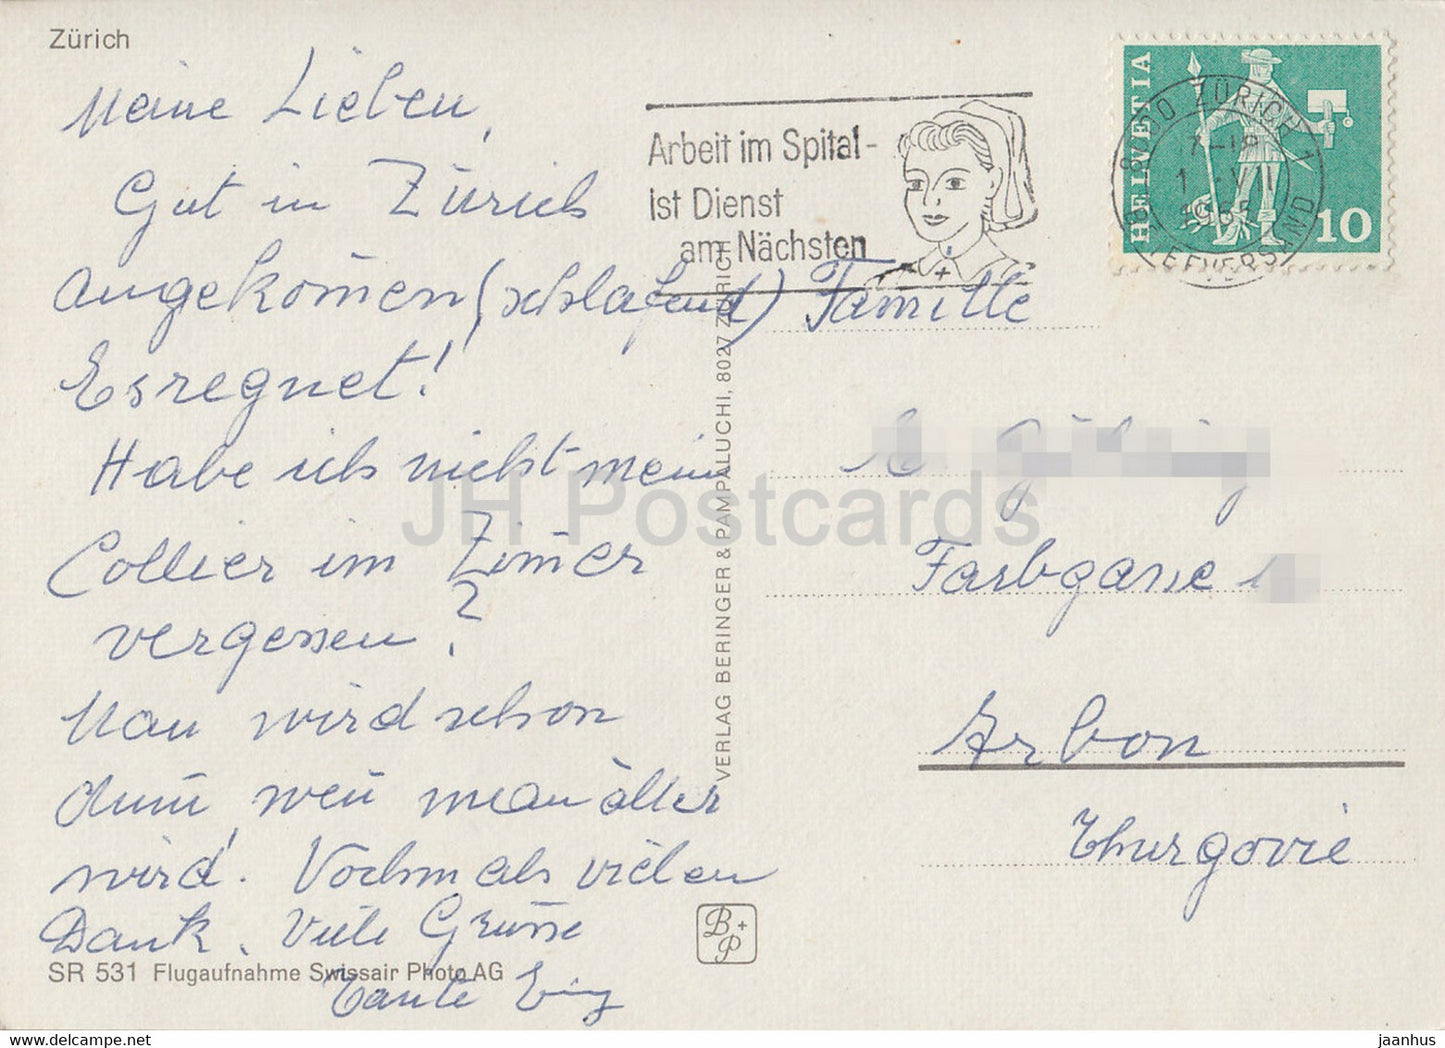 Zürich
Meine Lieben,
Gut in Zürich
angekom̄en (schlafend)
Es regnet!
Habe ich nicht mein
Collier im Zim̄er
vergessen?
Man wird schon
dum̄, wen̄ man älter
wird. Nochmals vielen
Dank. Viele Grüsse
Tante
SR 531 Flugaufnahme Swissair Photo AG
Arbeit im Spital-
ist Dienst
am Nächsten
HELVETIA
10
8000 ZÜRICH 1
BRIEFVERSAND
VERLAG BERINGER & PAMPALUCHI, 8027 ZÜRICH
Famille
Farbgasse
Arbon
Thurgovie
B+P
JH Postcards
www.delcampe.net
jaanhus